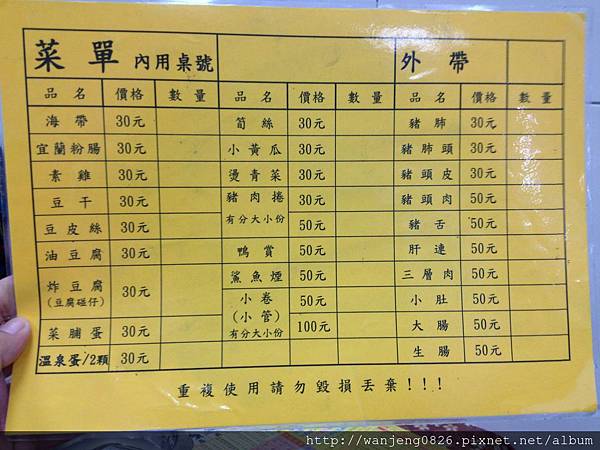 菜單 內用桌號 外帶
品名 價格 數量 品名 價格 數量 品名 價格 數量
海帶 30元 筍絲 30元 豬肺 30元
宜蘭粉腸 30元 小黃瓜 30元 豬肺頭 30元
素雞 30元 燙青菜 30元 豬頭皮 30元
豆干 30元 豬肉捲 30元 豬頭肉 50元
有分大小份
豆皮絲 30元 50元 豬舌 50元
油豆腐 30元 鴨賞 50元 肝連 50元
炸豆腐 30元 鯊魚煙 50元 三層肉 50元
(豆腐碰仔) 小卷 50元 小肚 50元
(小管)
菜脯蛋 30元 有分大小份 100元 大腸 50元
溫泉蛋/2顆 30元 生腸 50元
重複使用請勿毀損丟棄!!!
http://wanjeng0826.pixnet.net/album